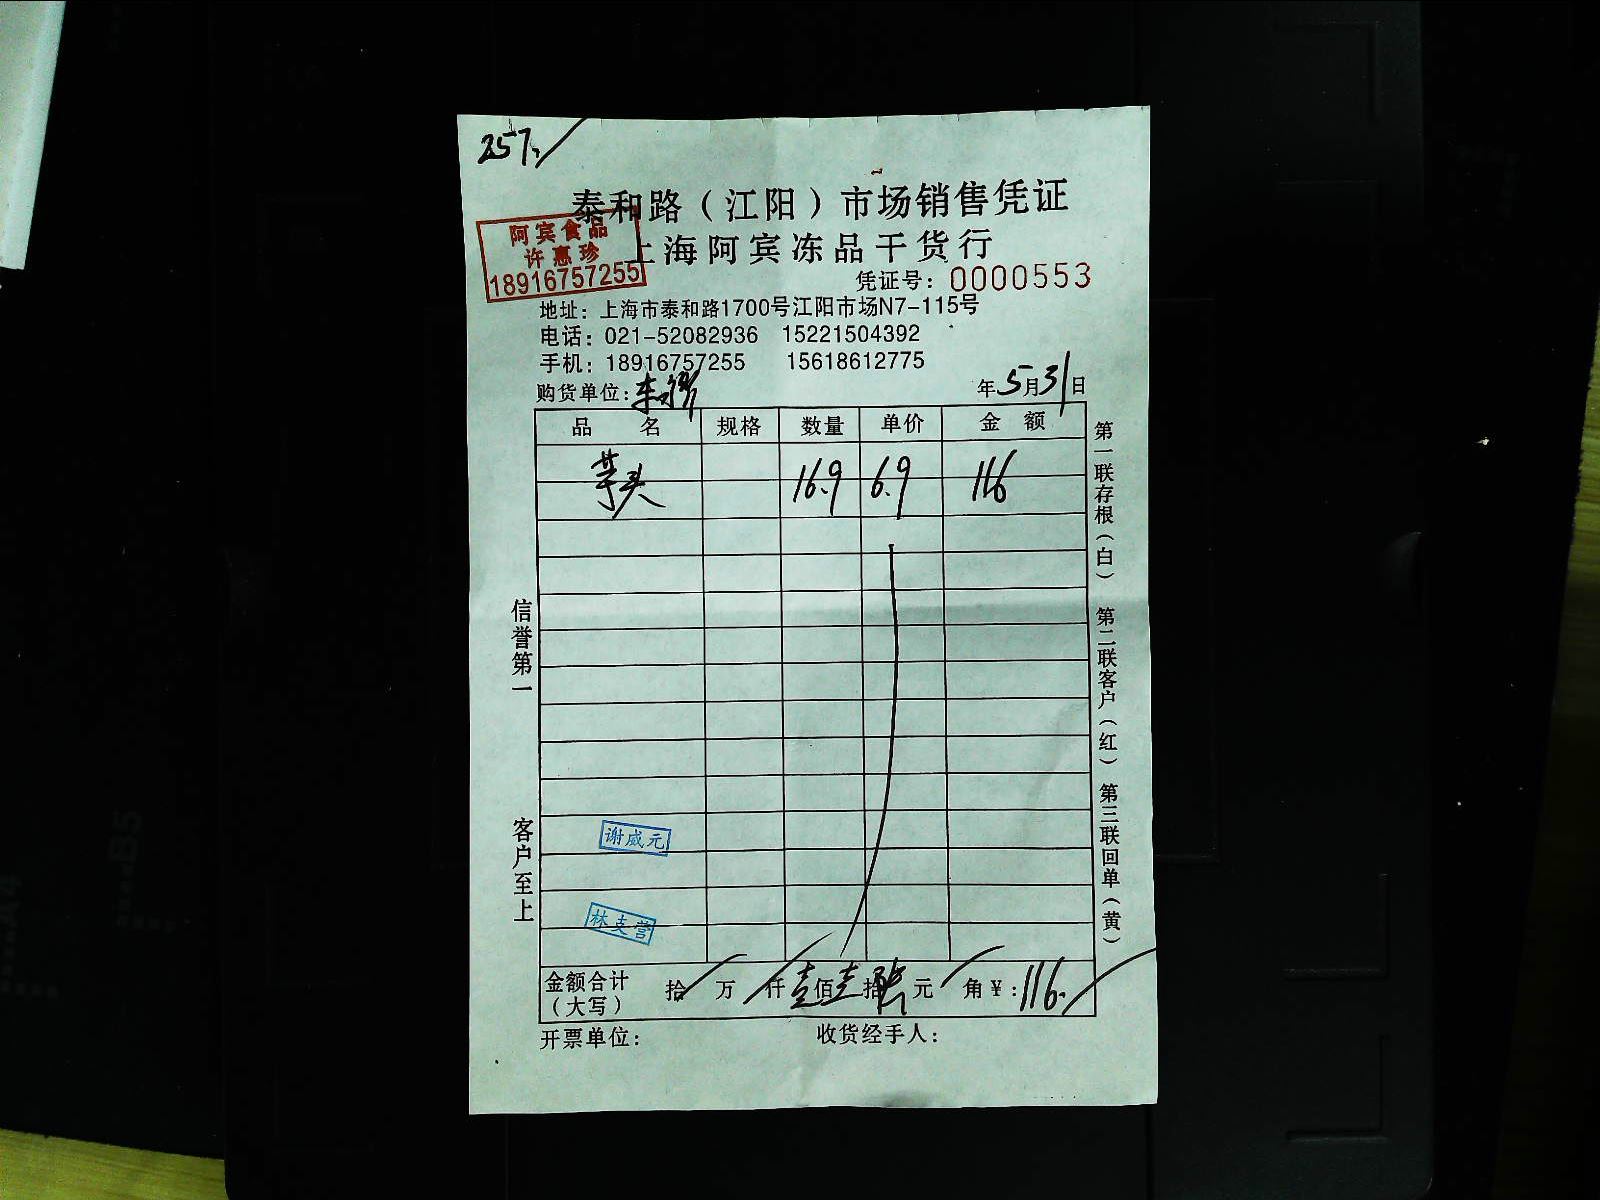 257.
泰和路（江阳）市场销售凭证
上海阿宾冻品干货行
阿宾食品
许惠珍
18916757255
凭证号：0000553
地址：上海市泰和路1700号江阳市场N7-115号
电话：021-52082936 15221504392
手机：18916757255 15618612775
购货单位：
年5月31日
品 名 规格 数量 单价 金 额
芋头 16.9 6.9 116
第一联存根（白） 第二联客户（红） 第三联回单（黄）
信誉第一
客户至上
谢威元
林支营
金额合计（大写） 拾 万 仟壹佰壹拾陆元 角¥：116.
开票单位： 收货经手人：